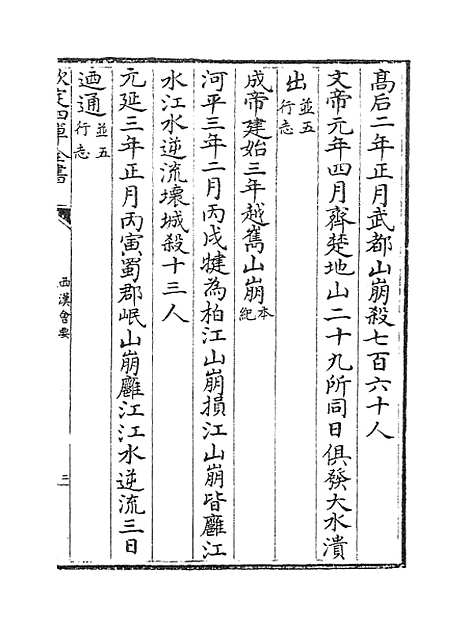 高后二年正月武都山崩殺七百六十人
文帝元年四月齊楚地山二十九所同日俱發大水潰
出並五行志
成帝建始三年越嶲山崩本紀
河平三年二月丙戌犍為柏江山崩損江山崩皆廱江
水江水逆流壞城殺十三人
元延三年正月丙寅蜀郡岷山崩廱江江水逆流三日
迺通並五行志
欽定四庫全書
西漢會要
三